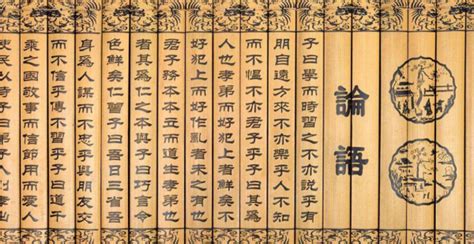 論語
子曰學而時習之不亦說乎有
朋自遠方來不亦樂乎人不知
而不慍不亦君子乎有子曰其爲
人也孝弟而好犯上者鮮矣不
好犯上而好作亂者未之有也
君子務本本立而道生孝弟也
者其爲仁之本與子曰巧言令
色鮮矣仁曾子曰吾日三省吾
身爲人謀而不忠乎與朋友交
而不信乎傳不習乎子曰道千
乘之國敬事而信節用而愛人
使民以時子曰弟子入則孝出